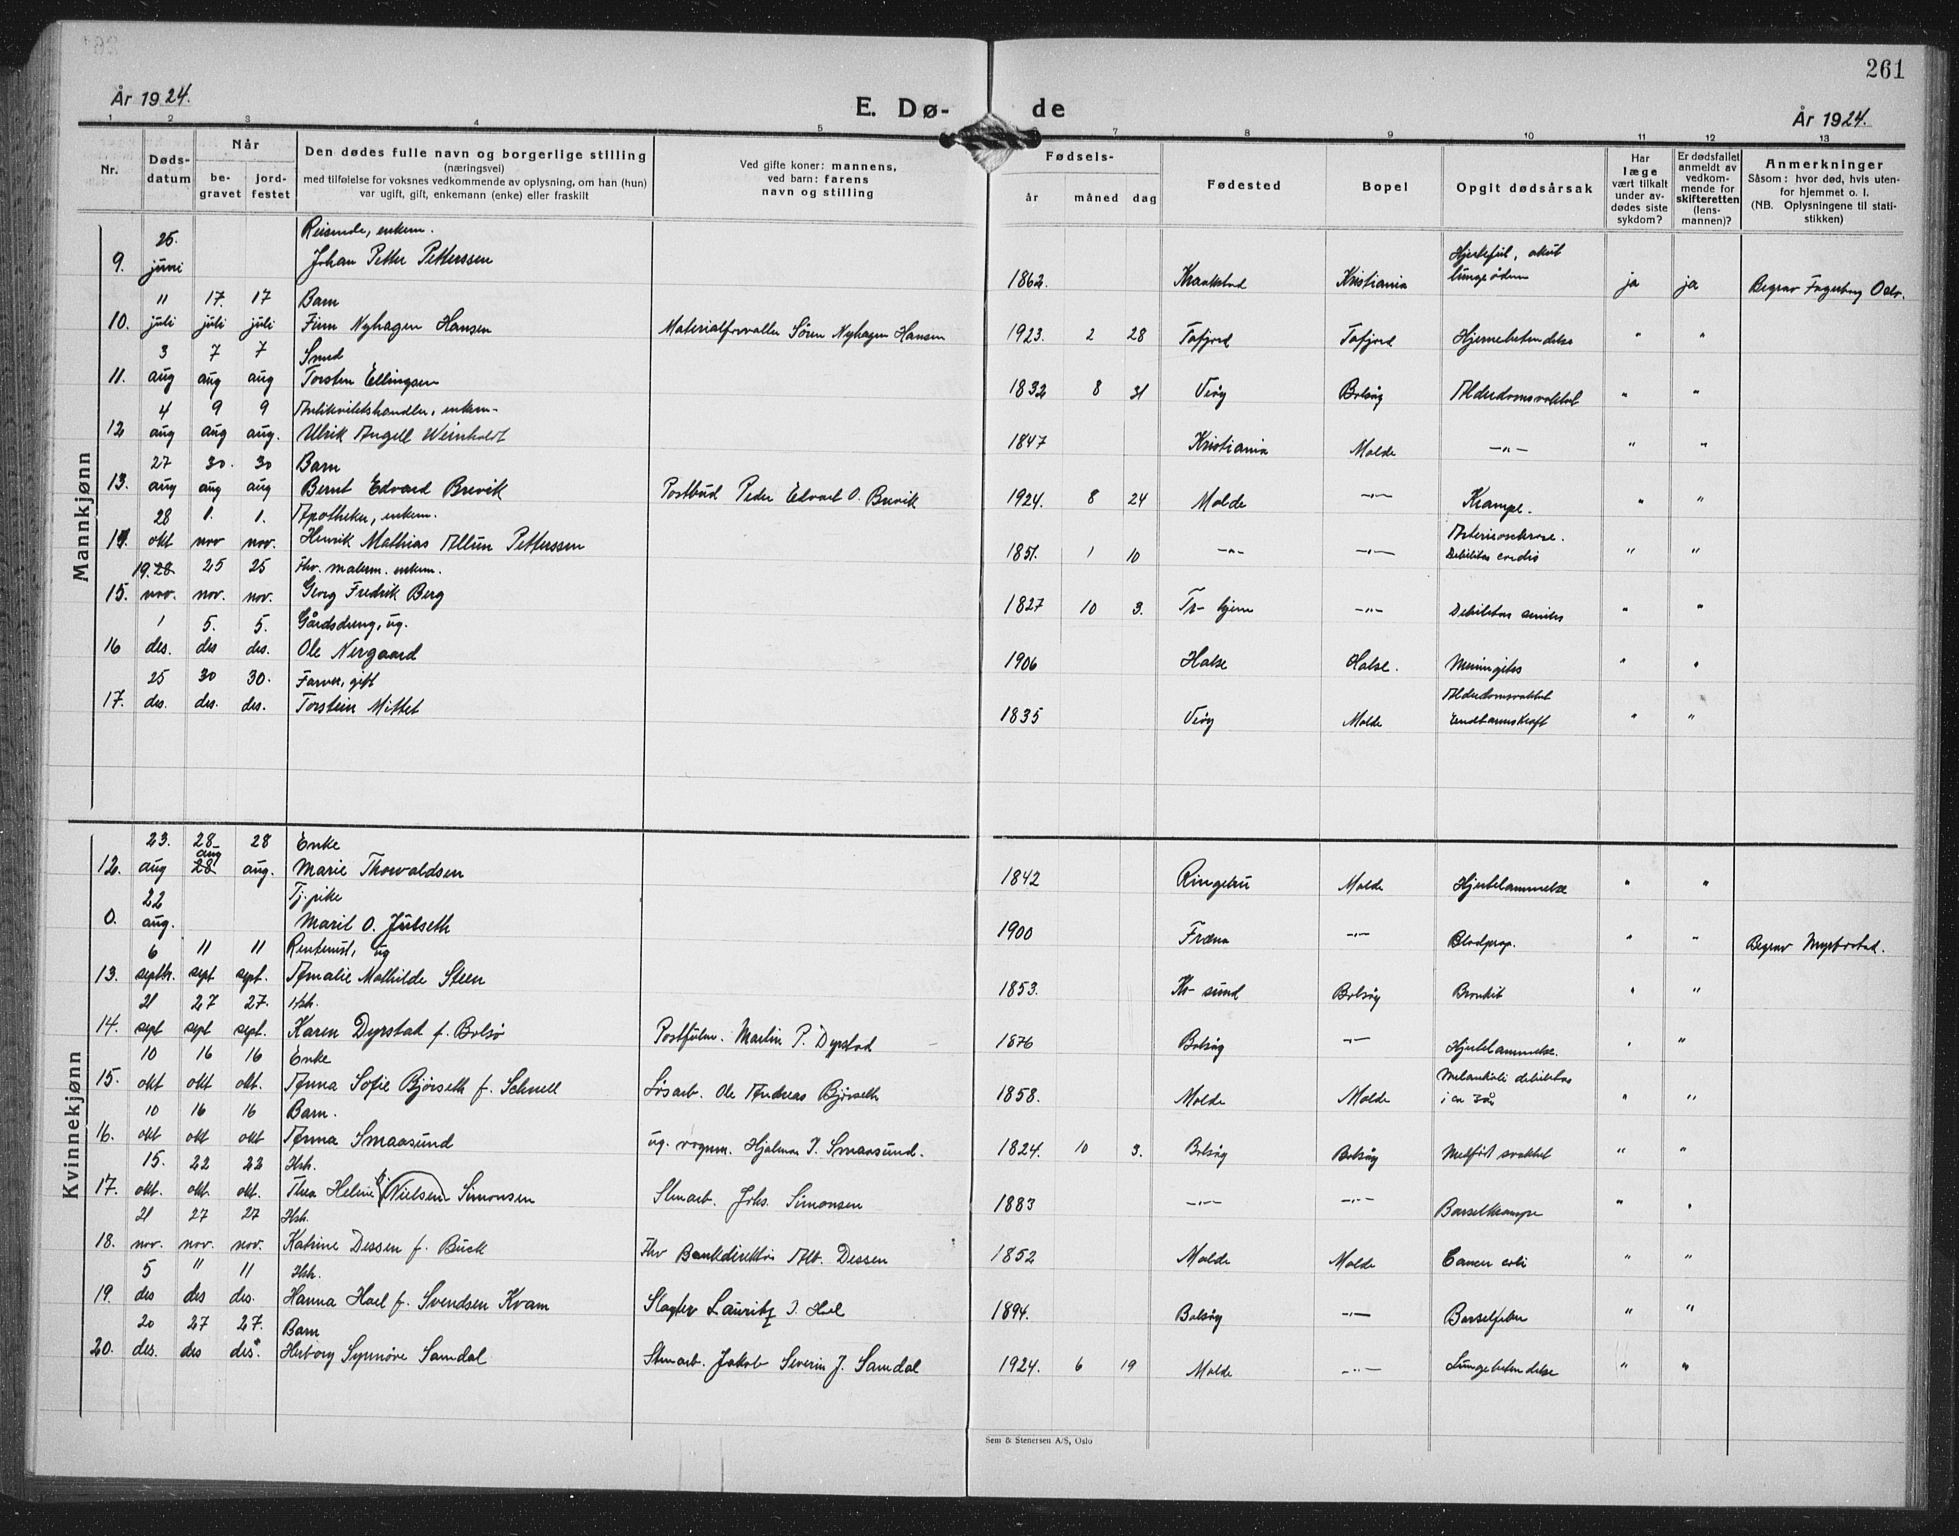 261
År 1924.
E. Dø- de
År 1924.
1 2 3 4 5 7 8 9 10 11 12 13
Nr.
Døds-datum
Når
be-gravet
jord-festet
Den dødes fulle navn og borgerlige stilling
(næringsvei)
med tilføielse for voksnes vedkommende av oplysning, om han (hun)
var ugift, gift, enkemann (enke) eller fraskilt
Ved gifte koner: mannens,
ved barn: farens
navn og stilling
Fødsels-
år måned dag
Fødested
Bopel
Opgit dødsårsak
Har læge vært tilkalt under av-dødes siste sykdom?
Er dødsfallet anmeldt av vedkom-mende for skifteretten (lens-mannen)?
Anmerkninger
Såsom: hvor død, hvis uten-
for hjemmet o. l.
(NB. Oplysningene til stati-
stikken)
Mannkjønn
25. Reisende, enkem.
9. juni Johan Petter Petterssen 1862. Kraakstad Kristiania Hjertefeil, akut lungeødem ja ja Begrav Fagerborg Oslo.
11 17. 17 Barn
10. juli juli juli Finn Nyhagen Hansen Materialforvalter Sören Nyhagen Hansen 1923. 2 28 Tafjord Tafjord Hjernebetendelse " "
3 7 7 Smed
11. aug aug aug Torsten Ellingsen 1832 8 31 Veöy Bolsöy Alderdomssvakhet " "
4 9 9 Antikvitetshandler, enkem.
12 aug aug aug. Ulrik Angell Weinholdt 1847 Kristiania Molde —"— " "
27 30. 30 Barn
13. aug aug aug Bernt Edvard Brevik Postbud Peder Edvart O. Brevik 1924. 8 24 Molde —"— Krampe. " "
28 1. 1. Apotheker, enkem.
14. okt nov nov. Henrik Mathias Allum Petterssen 1851. 1 10 —"— —"— Arteriosclerose. Debilitas cordis " "
19. 28 25 25 Fhv. malerm. enkem.
15. nov. nov. nov. Georg Fredrik Berg 1827 10 3. Tr-hjem —"— Debilitas senilis " "
1 5. 5. Gårdsdreng, ug.
16 des. des des. Ole Nergaard 1906 Halse Halse. Meningites " "
25 30 30. Farver, gift
17. des. des. des. Torstein Mittet 1835 Veöy Molde Alderdomssvakhet " "
Kvinnekjønn
23. 28 28 Enke
12. aug aug 28 aug. Marie Thorvaldsen 1842 Ringebu Molde Hjertelammelse " "
22 Tj. pike
0. aug. Marit O. Julseth 1900 Fræna —"— Blodprop. " " Begrav Myrbostad.
6 11 11 Rentenist, ug
13. septbr. sept. sept. Amalie Mathilde Steen 1853. Kr-sund Bolsöy Bronkit " "
21 27 27. Hstr.
14. sept sept sept. Karen Dyrstad f. Bolsö Postfulm. Martin P. Dyrstad 1876 Bolsöy —"— Hjertelammelse. " "
10 16 16 Enke
15. okt okt okt. Anna Sofie Björseth f. Schnell Løsarb. Ole Andreas Björseth 1858. Molde Molde Melankoli debilitas i ca 3 år " "
10 16 16 Barn.
16. okt okt okt Anna Smaasund ug. vognm. Hjalmar J. Smaasund. 1824. 10 3. Bolsöy Bolsöy Medfödt svakhet " "
15. 22 22 Hstr.
17. okt. okt. okt. Thea Heline f. (Nielsen) Simonsen Stenarb. Johs. Simonsen 1883 —"— —"— Barselkrampe " "
21 27 27 Hstr.
18. nov. nov. nov. Katrine Dessen f. Buck Fhv Bankdirektör Alb. Dessen 1852 Molde Molde Cancer coli " "
5 11 11 Hstr.
19. des des des. Hanna Hoel f. Svendsen Kvam Slagter Lauritz J. Hoel 1894. Bolsöy —"— Barselfeber " "
20 27 27. Barn
20. des. des des. Herborg Synnöve Samdal Stenarb. Jakob Severin J. Samdal 1924. 6 19 Molde —"— Lungebetendelse " "
Sem & Stenersen A/S, Oslo